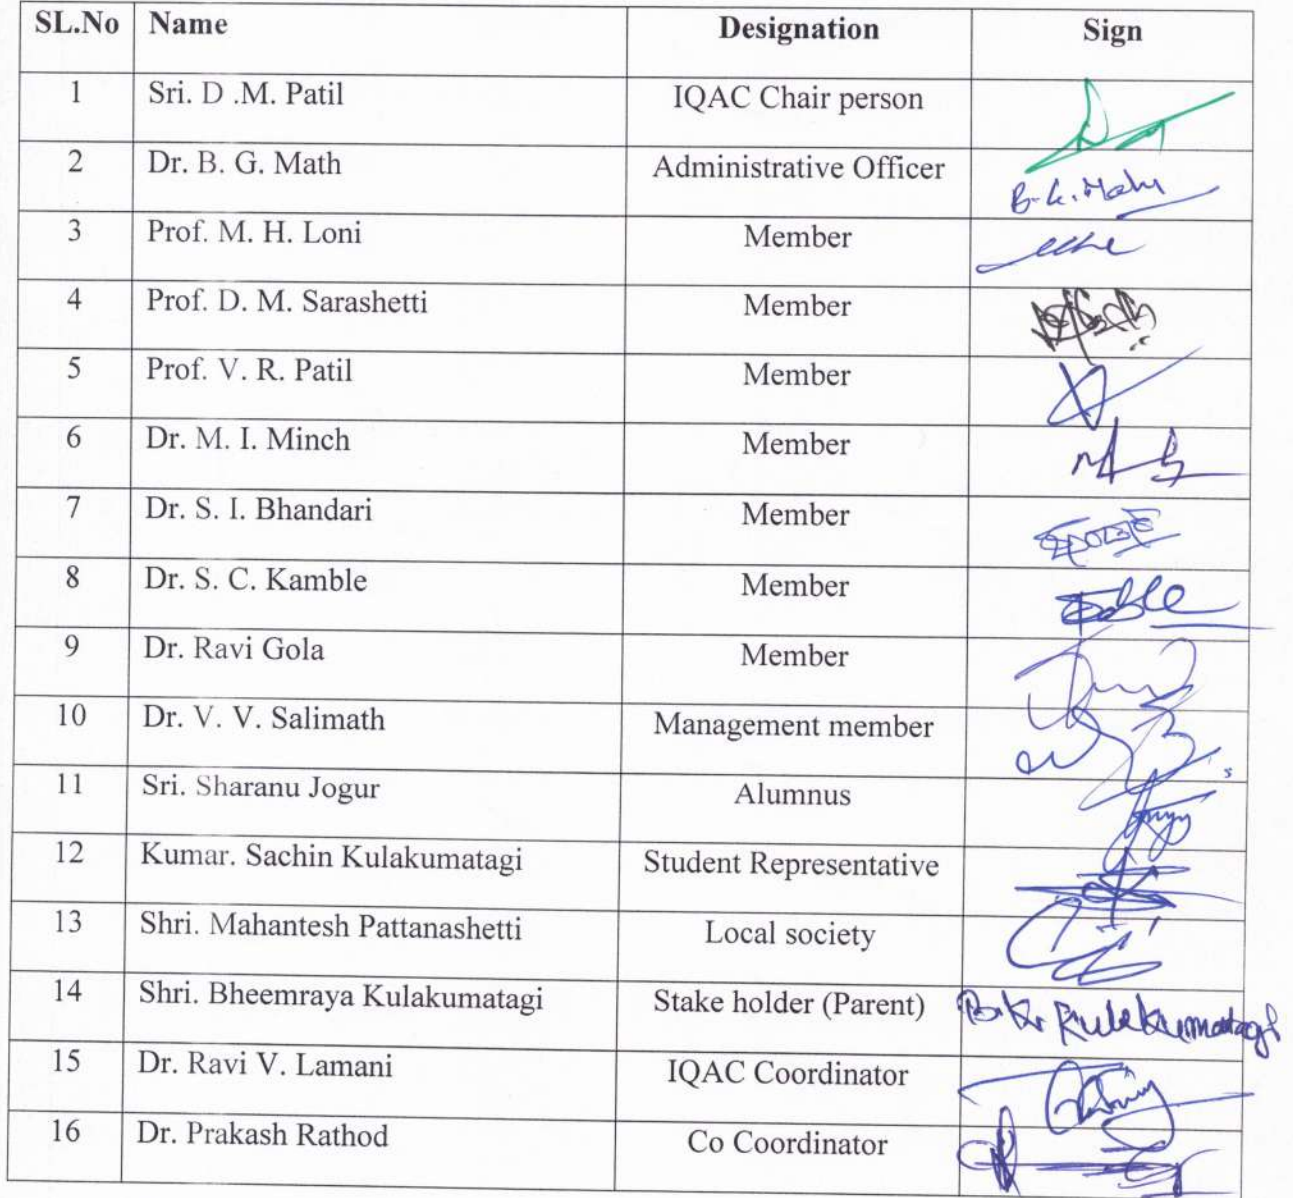 SL.No Name Designation Sign
1 Sri. D .M. Patil IQAC Chair person
2 Dr. B. G. Math Administrative Officer
3 Prof. M. H. Loni Member
4 Prof. D. M. Sarashetti Member
5 Prof. V. R. Patil Member
6 Dr. M. I. Minch Member
7 Dr. S. I. Bhandari Member
8 Dr. S. C. Kamble Member
9 Dr. Ravi Gola Member
10 Dr. V. V. Salimath Management member
11 Sri. Sharanu Jogur Alumnus
12 Kumar. Sachin Kulakumatagi Student Representative
13 Shri. Mahantesh Pattanashetti Local society
14 Shri. Bheemraya Kulakumatagi Stake holder (Parent) Kulakumatagi
15 Dr. Ravi V. Lamani IQAC Coordinator
16 Dr. Prakash Rathod Co Coordinator